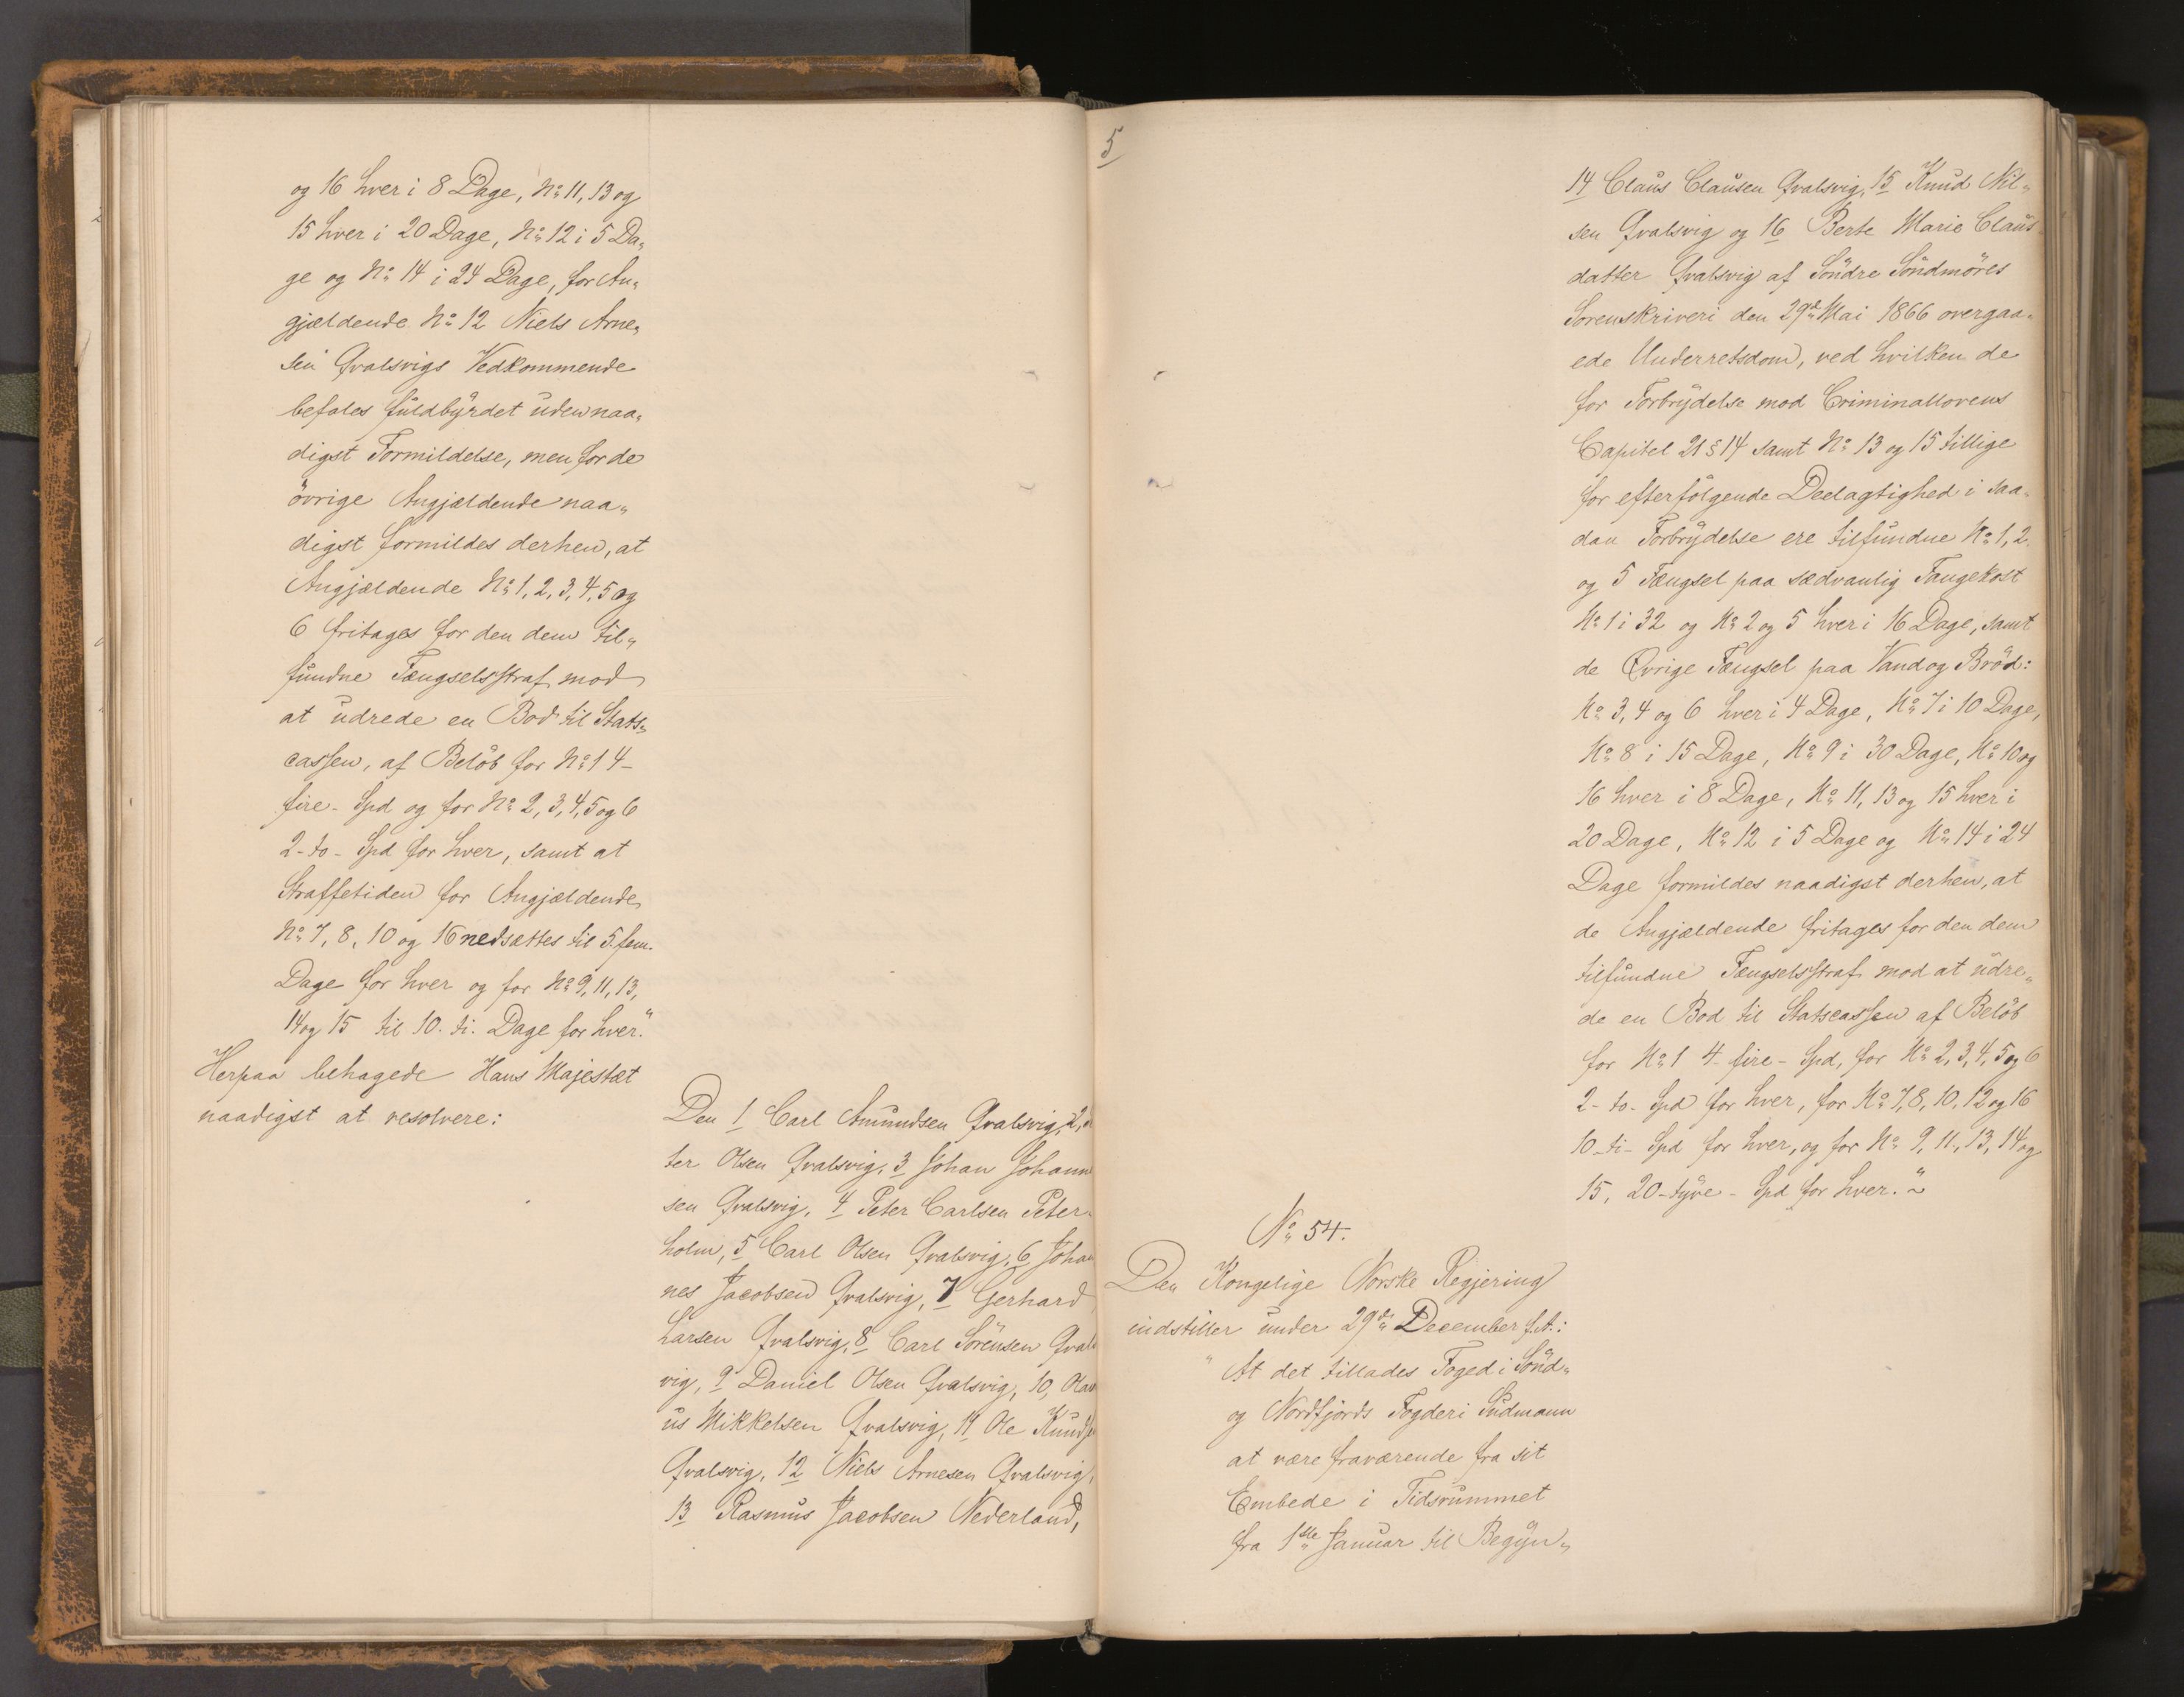 og 16 hver i 8 Dage, No 11, 13 og
15 hver i 20 Dage, No 12 i 5 Da„
ge og No 14 i 24 Dage, for An„
gjældende No 12 Niels Arne„
sen Qvalsvigs Vedkommende
befales fuldbyrdet uden naa„
digst Formildelse, men for de
övrige Angjældende naa„
digst formildes derhen, at
Angjældende No 1, 2, 3, 4, 5 og
6 fritages for den dem til„
fundne Fængselsstraf mod
at udrede en Bod til Stats„
cassen, af Belöb for No 1 4 -
fire - Spd og for No 2, 3, 4, 5 og 6
2 - to - Spd for hver, samt at
Straffetiden for Angjældende
No 7, 8, 10 og 16 nedsættes til 5. fem.
Dage for hver og for No 9, 11, 13,
14 og 15 til 10. ti. Dage for hver."
Herpaa behagede Hans Majestæt
naadigst at resolvere:
Den 1 Carl Amundsen Qvalsvig, 2,
ter Olsen Qvalsvig, 3 Johan Johann
sen Qvalsvig, 4 Peter Carlsen Peter„
holm, 5 Carl Olsen Qvalsvig, 6 Johan
nes Jacobsen Qvalsvig, 7 Gerhard
Larsen Qvalsvig, 8 Carl Sörensen Qvals
vig, 9 Daniel Olsen Qvalsvig, 10, Olav
us Mikkelsen Qvalsvig, 11 Ole Knuds
Qvalsvig, 12 Niels Arnesen Qvalsvig,
13 Rasmus Jacobsen Nederland,
5
14 Claus Clausen Qvalsvig, 15 Knud Nil„
sen Qvalsvig og 16 Berte Marie Claus
datter Qvalsvig af Söndre Söndmöres
Sorenskriveri den 29de Mai 1866 overgaa„
ede Underretsdom, ved hvilken de
for Forbrydelse mod Criminallovens
Capitel 21 § 14 samt No 13 og 15 tillige
for efterfölgende Deelagtighed i saa„
dan Forbrydelse ere tilfundne No 1, 2
og 5 Fængsel paa sædvanlig Fangekost
No 1 i 32 og No 2 og 5 hver i 16 Dage, samt
de Øvrige Fængsel paa Vand og Bröd:
No 3, 4 og 6 hver i 4 Dage, No 7 i 10 Dage,
No 8 i 15 Dage, No 9 i 30 Dage, No 10 og
16 hver i 8 Dage, No 11, 13 og 15 hver i
20 Dage, No 12 i 5 Dage og No 14 i 24
Dage formildes naadigst derhen, at
de Angjældende fritages for den dem
tilfundne Fængselsstraf mod at udre„
de en Bod til Statscassen af Belöb
for No 1 4 - fire - Spd, for No 2, 3, 4, 5 og 6
2 - to - Spd for hver, for No 7, 8, 10, 12 og 16
10 - ti - Spd for hver, og for No 9, 11, 13, 14 og
15, 20 - tyve - Spd for hver. ~
No 54.
Den Kongelige Norske Regjering
indstiller under 29de December f. A.:
" At det tillades Foged i Sönd„
og Nordfjords Fogderi Sudmann
at være fraværende fra sit
Embede i Tidsrummet
fra 1ste Januar til Begyn„